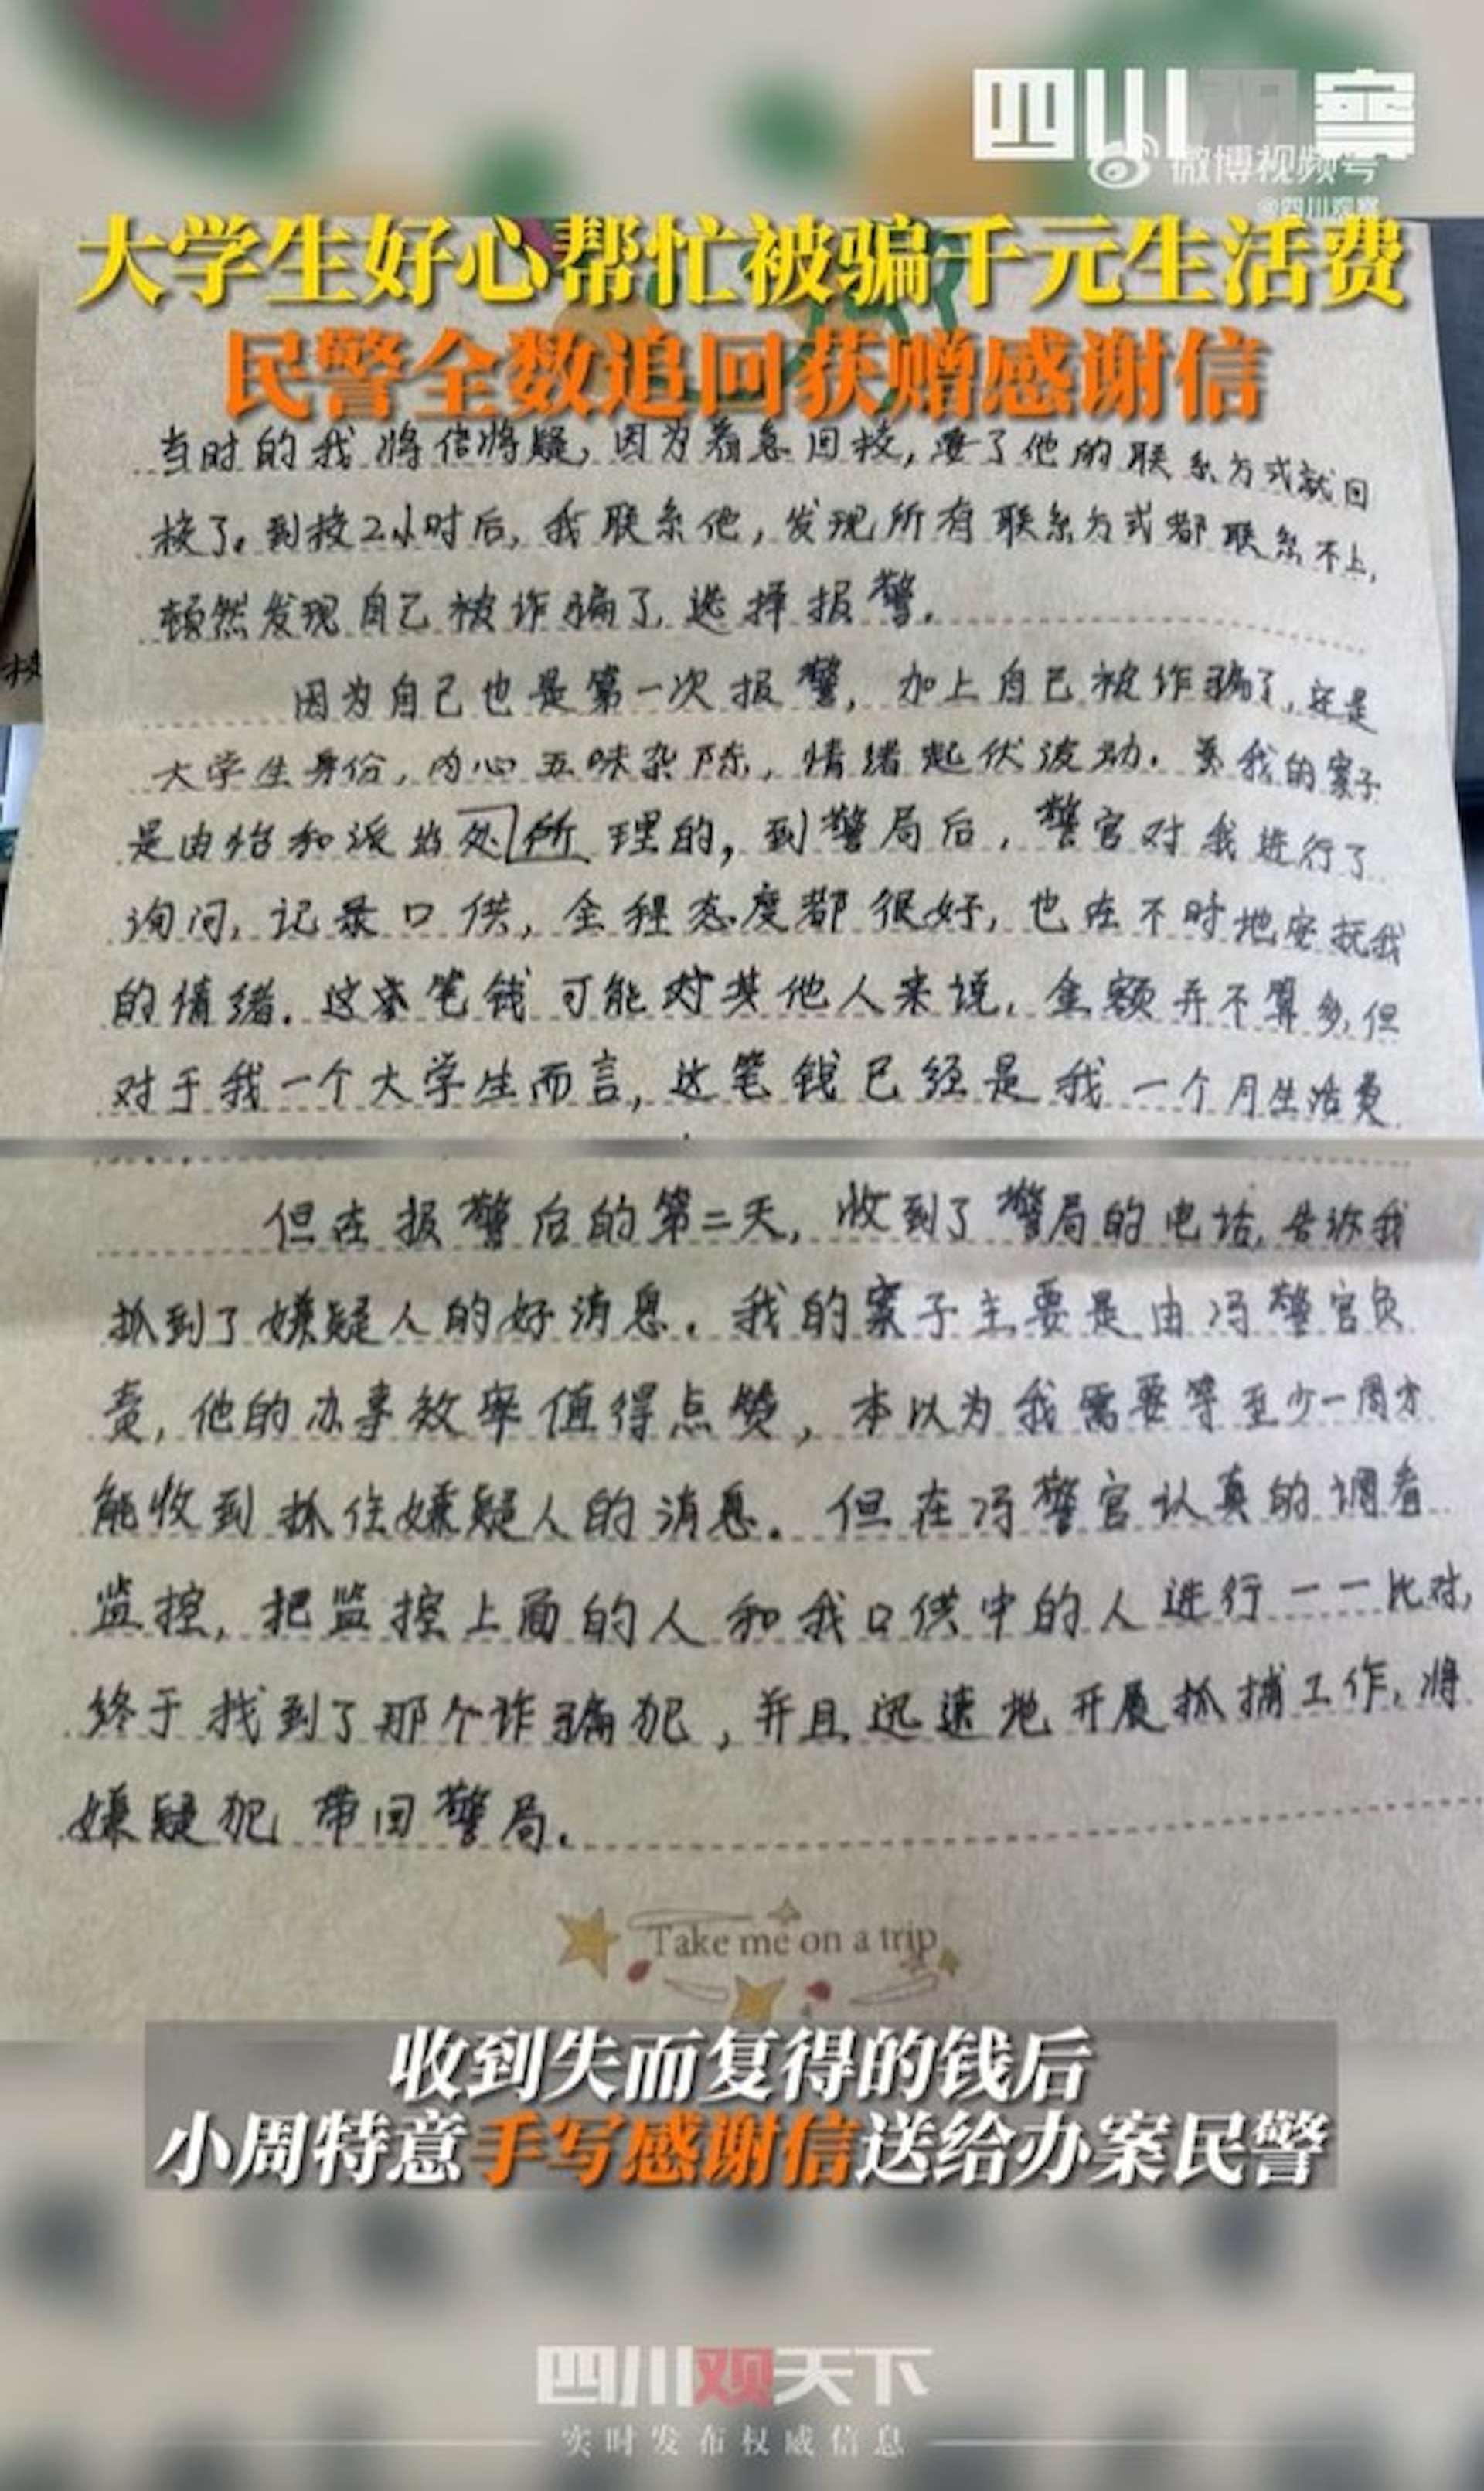 四川观察
微博视频号
@四川观察
大学生好心帮忙被骗千元生活费
民警全数追回获赠感谢信
当时的我将信将疑,因为着急回校,要了他的联系方式就回
校了。到校2小时后,我联系他,发现所有联系方式都联系不上,
顿然发现自己被诈骗了,选择报警。
因为自己也是第一次报警,加上自己被诈骗了,还是
大学生身份,内心五味杂陈,情绪起伏波动。我的案子
是由怡和派出处所理的,到警局后,警官对我进行了
询问,记录口供,全程态度都很好,也在不时地安抚我
的情绪。这笔钱可能对其他人来说,金额并不算多,但
对于我一个大学生而言,这笔钱已经是我一个月生活费
但在报警后的第二天,收到了警局的电话,告称我
抓到了嫌疑人的好消息。我的案子主要是由冯警官负
责,他的办事效率值得点赞,本以为我需要等至少一周才
能收到抓住嫌疑人的消息。但在冯警官认真的调看
监控,把监控上面的人和我口供中的人进行一一比对,
终于找到了那个诈骗犯,并且迅速地开展抓捕工作,将
嫌疑犯带回警局。
Take me on a trip
收到失而复得的钱后
小周特意手写感谢信送给办案民警
四川观天下
实时发布权威信息